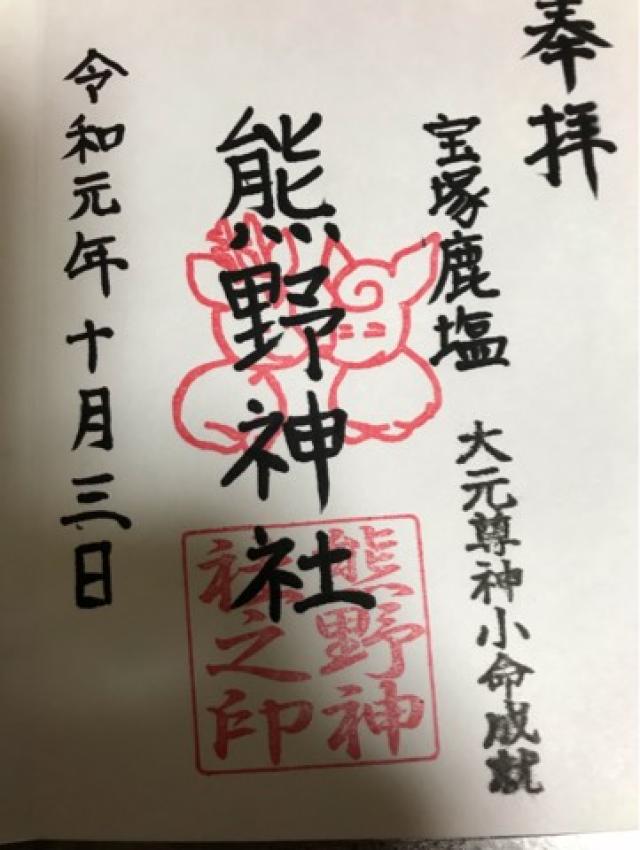 奉拝
宝塚鹿塩
大元尊神小命成就
熊野神社
熊野神
社之印
令和元年十月三日